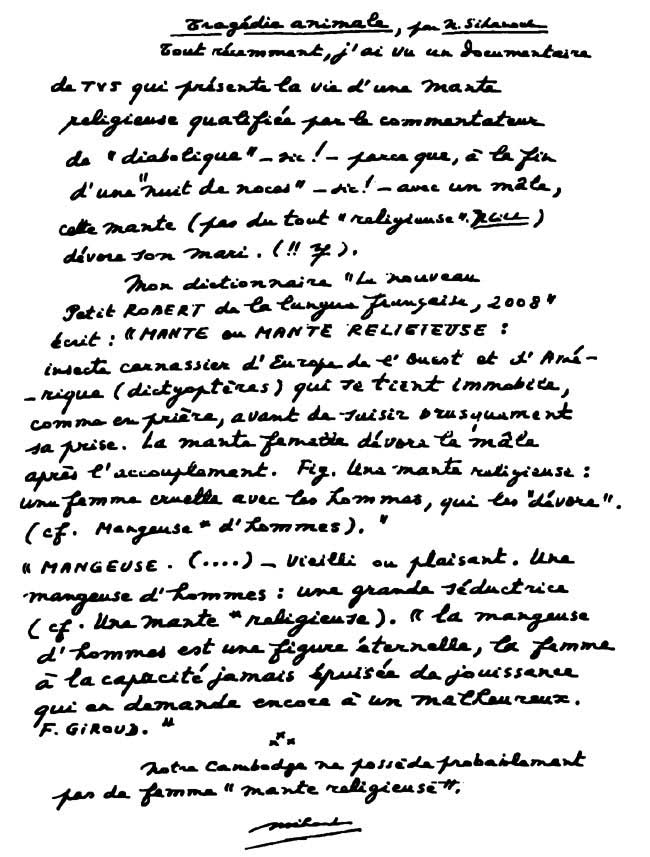 Tragédie animale, par N. Sihanouk
Tout récemment, j'ai vu un documentaire
de TV5 qui présente la vie d'une mante
religieuse qualifiée par le commentateur
de "diabolique" - sic! - parce que, à la fin
d'une "nuit de noces" - sic! - avec un mâle,
cette mante (pas du tout "religieuse".
dévore son mari. (!!
Mon dictionnaire "Le nouveau
Petit ROBERT de la langue française, 2008"
écrit : "MANTE ou MANTE RELIGIEUSE :
insecte carnassier d'Europe de l'Ouest et d'Amé-
-rique (dictyoptères) qui se tient immobile,
comme en prière, avant de saisir brusquement
sa prise. La mante femelle dévore le mâle
après l'accouplement. Fig. Une mante religieuse :
une femme cruelle avec les hommes, qui les "dévore".
(cf. Mangeuse * d'hommes)."
"MANGEUSE. (....) - Vieilli ou plaisant. Une
mangeuse d'hommes : une grande séductrice
(cf. Une mante * religieuse). "La mangeuse
d'hommes est une figure éternelle, la femme
à la capacité jamais épuisée de jouissance
qui en demande encore à un malheureux.
F. GIROUD."
***
Notre Cambodge ne possède probablement
pas de femme "mante religieuse".